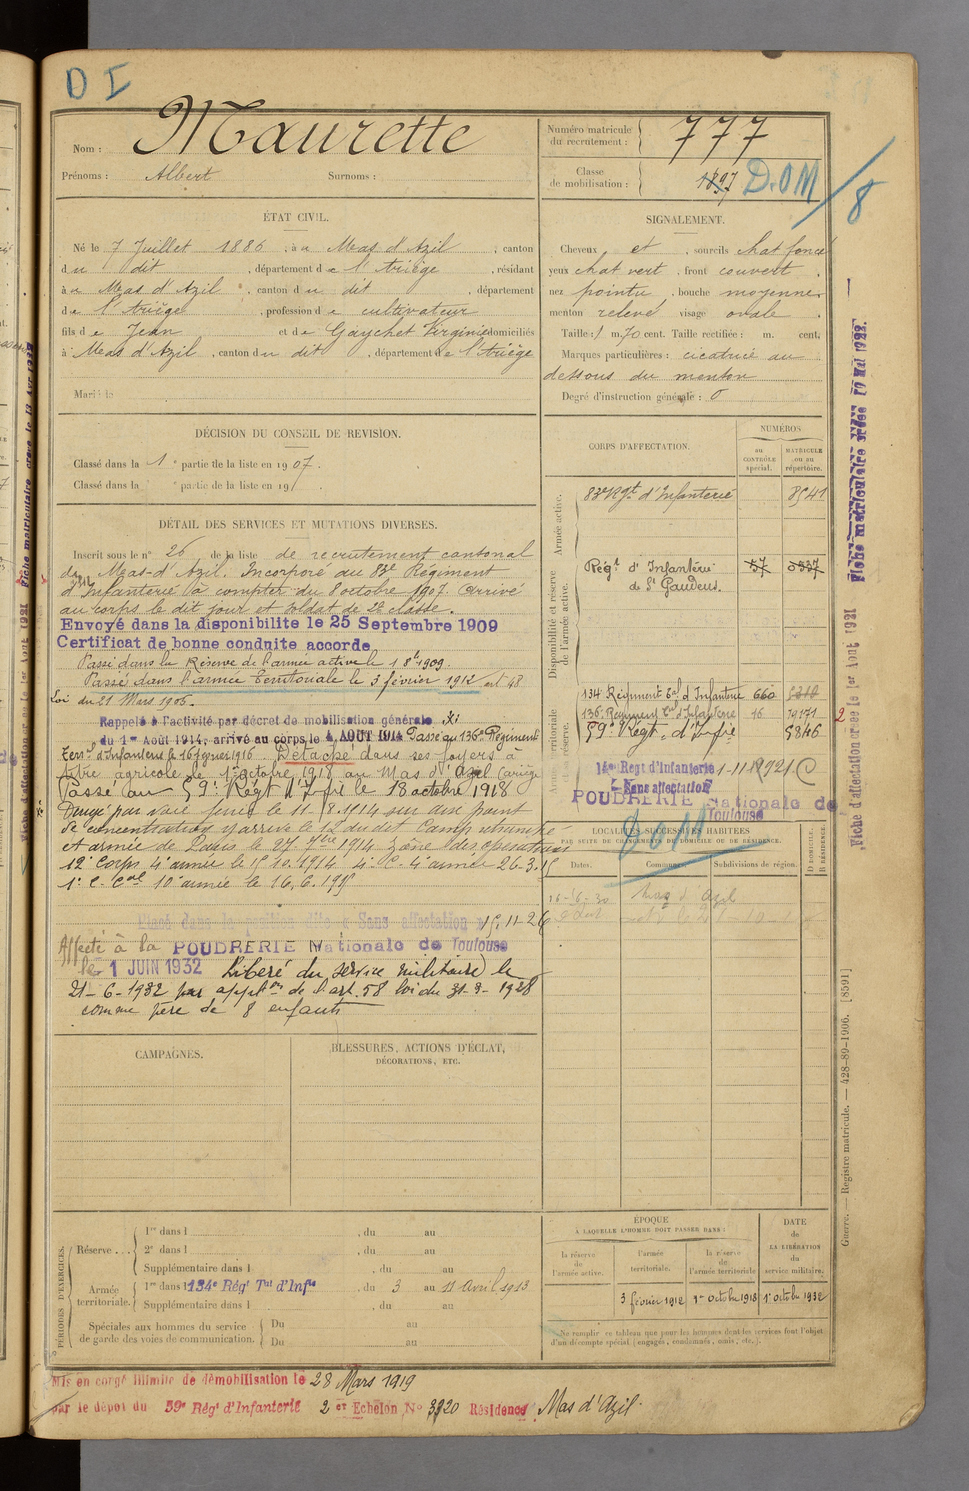 D I
Nom : Maurette
Prénoms : Albert Surnoms :
Numéro matricule du recrutement : 777
Classe de mobilisation : 1897 D.OM /8
ÉTAT CIVIL.
Né le 7 Juillet 1886, à u Mas d'Azil, canton
du dit, département de l'Ariège, résidant
à u Mas d'Azil, canton du dit, département
de l'Ariège, profession de cultivateur
fils de Jean et de Gaychet Virginie domiciliés
à Mas d'Azil, canton du dit, département de l'Ariège
Marié à
SIGNALEMENT.
Cheveux et sourcils chat foncé
yeux chat vert, front couvert,
nez pointu, bouche moyenne,
menton relevé visage ovale.
Taille : 1 m. 70 cent. Taille rectifiée : m. cent.
Marques particulières : cicatrice au
dessous du menton
Degré d'instruction générale : 0
DÉCISION DU CONSEIL DE REVISION.
Classé dans la 1e partie de la liste en 1907.
Classé dans la e partie de la liste en 19
DÉTAIL DES SERVICES ET MUTATIONS DIVERSES.
Inscrit sous le n° 26 de la liste de recrutement cantonal
du Mas-d'Azil. Incorporé au 83e Régiment
d'Infanterie à compter du 8 octobre 1907. Arrivé
au corps le dit jour et soldat de 2e classe.
Envoyé dans la disponibilite le 25 Septembre 1909
Certificat de bonne conduite accorde
Passé dans la Réserve de l'armée active le 1 8bre 1909.
Passé dans l'armée Territoriale le 3 février 1912 art 48
Loi du 21 Mars 1905.
Rappelé à l'activité par décret de mobilisation générale
du 1er Août 1914, arrivé au corps le 4 AOUT 1914 Passé au 136e Régiment
Terral d'Infanterie le 16 février 1916. Détaché dans ses foyers à
titre agricole le 1er octobre 1918 au Mas d'Azil (Ariège
Passé au 59e Régt d'Infie le 18 octobre 1918
Dirigé par voie ferrée le 11-8-1914 sur un point
de concentration y arrive le 12 dudit Camp retranché
et armée de Paris le 27 7bre 1914 zone des opérations
12e Corps 4e armée le 15.10.1914 4e C. 4e armée 26-3-15
1er C. Cal 10e armée le 16.6.1915
Placé dans la position dite « Sans affectation » 15-11-26
Affecté à la POUDRERIE Nationale de Toulouse
le 1 JUIN 1932 Libéré du service militaire le
21-6-1932 par applton de l'art. 58 loi du 31-3-1928
comme père de 8 enfants
CORPS D'AFFECTATION.
NUMÉROS
au CONTRÔLE spécial.
MATRICULE ou au répertoire.
Armée active.
83e Rgt d'Infanterie 8541
Disponibilité et réserve de l'armée active.
Régt d'Infanterie de St Gaudens. 57
Armée territoriale et sa réserve.
134e Régiment Tal d'Infanterie 660
136e Régiment Tal d'Infanterie 16 19171
59e Régt d'Infie 5846
14e Regt d'Infanterie 1-11-1921
Sans affectation
POUDRERIE Nationale de Toulouse
LOCALITÉS SUCCESSIVES HABITÉES
PAR SUITE DE CHANGEMENTS DE DOMICILE OU DE RÉSIDENCE.
Dates. Communes. Subdivisions de région. D. DOMICILE. R. RÉSIDENCE.
16-6-30 Mas d'Azil
CAMPAGNES.
BLESSURES, ACTIONS D'ÉCLAT, DÉCORATIONS, ETC.
PÉRIODES D'EXERCICES.
Réserve...
1re dans l , du au
2e dans l , du au
Supplémentaire dans l , du au
Armée territoriale.
1re dans l 134e Régt Tal d'Infie , du 3 au 11 Avril 1913
Supplémentaire dans l , du au
Spéciales aux hommes du service de garde des voies de communication.
Du au
Du au
ÉPOQUE
À LAQUELLE L'HOMME DOIT PASSER DANS :
la réserve de l'armée active.
l'armée territoriale. 3 février 1912
la réserve de l'armée territoriale 1er octobre 1918
DATE de LA LIBÉRATION du service militaire. 1er octobre 1932
Ne remplir ce tableau que pour les hommes dont les services font l'objet d'un décompte spécial (engagés, condamnés, omis, etc.).
Mis en congé illimité de démobilisation le 28 Mars 1919
par le dépot du 59e Régt d'Infanterie 2e Echelon N° 3920 Résidence Mas d'Azil.
Fiche d'affectation créée le 1er Aout 1921
Fiche matriculaire créée
Guerre. — Registre matricule. — 428-89-1906. [8591]